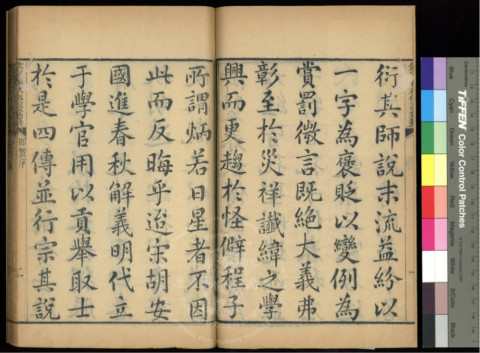 衍其師說末流益紛以
一字為褒貶以變例為
賞罰微言既絕大義弗
彰至於災祥讖緯之學
興而更趨於怪僻程子
所謂炳若日星者不因
此而反晦乎迨宋胡安
國進春秋解義明代立
于學官用以貢舉取士
於是四傳並行宗其說
御製序
TIFFEN Color Control Patches
Blue
Cyan
Green
Yellow
Red
Magenta
White
3/Color
Black